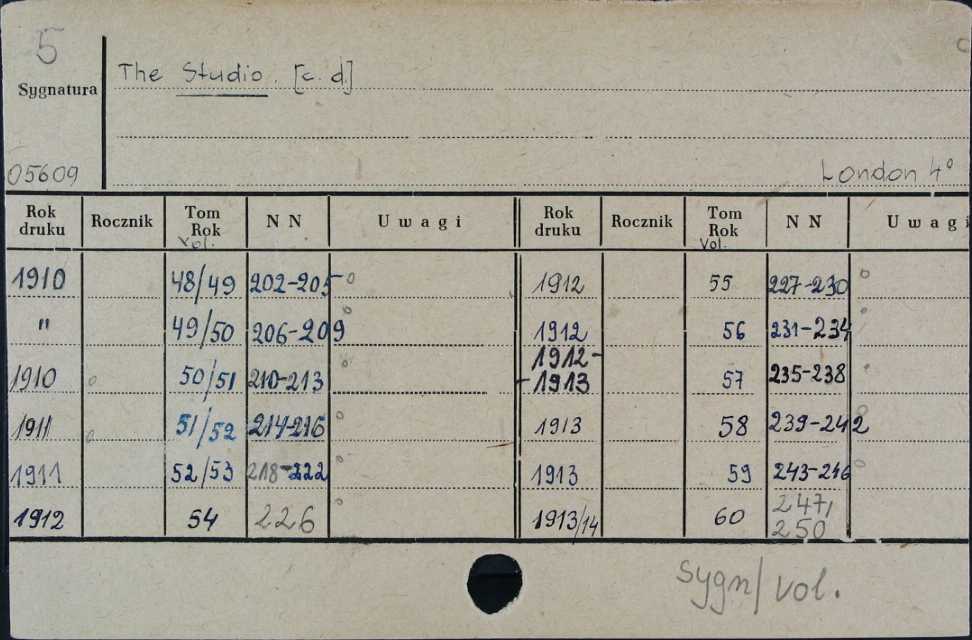 5
The Studio. [c.d]
Sygnatura
05609
London 4°
Rok druku Rocznik Tom Rok Vol. N N Uwagi Rok druku Rocznik Tom Rok Vol. N N Uwagi
1910 48/49 202-205 1912 55 227-230
" 49/50 206-209 1912 56 231-234
1910 50/51 210-213 1912-1913 57 235-238
1911 51/52 214-216 1913 58 239-242
1911 52/53 218-222 1913 59 243-246
1912 54 226 1913/14 60 247, 250
sygn/vol.